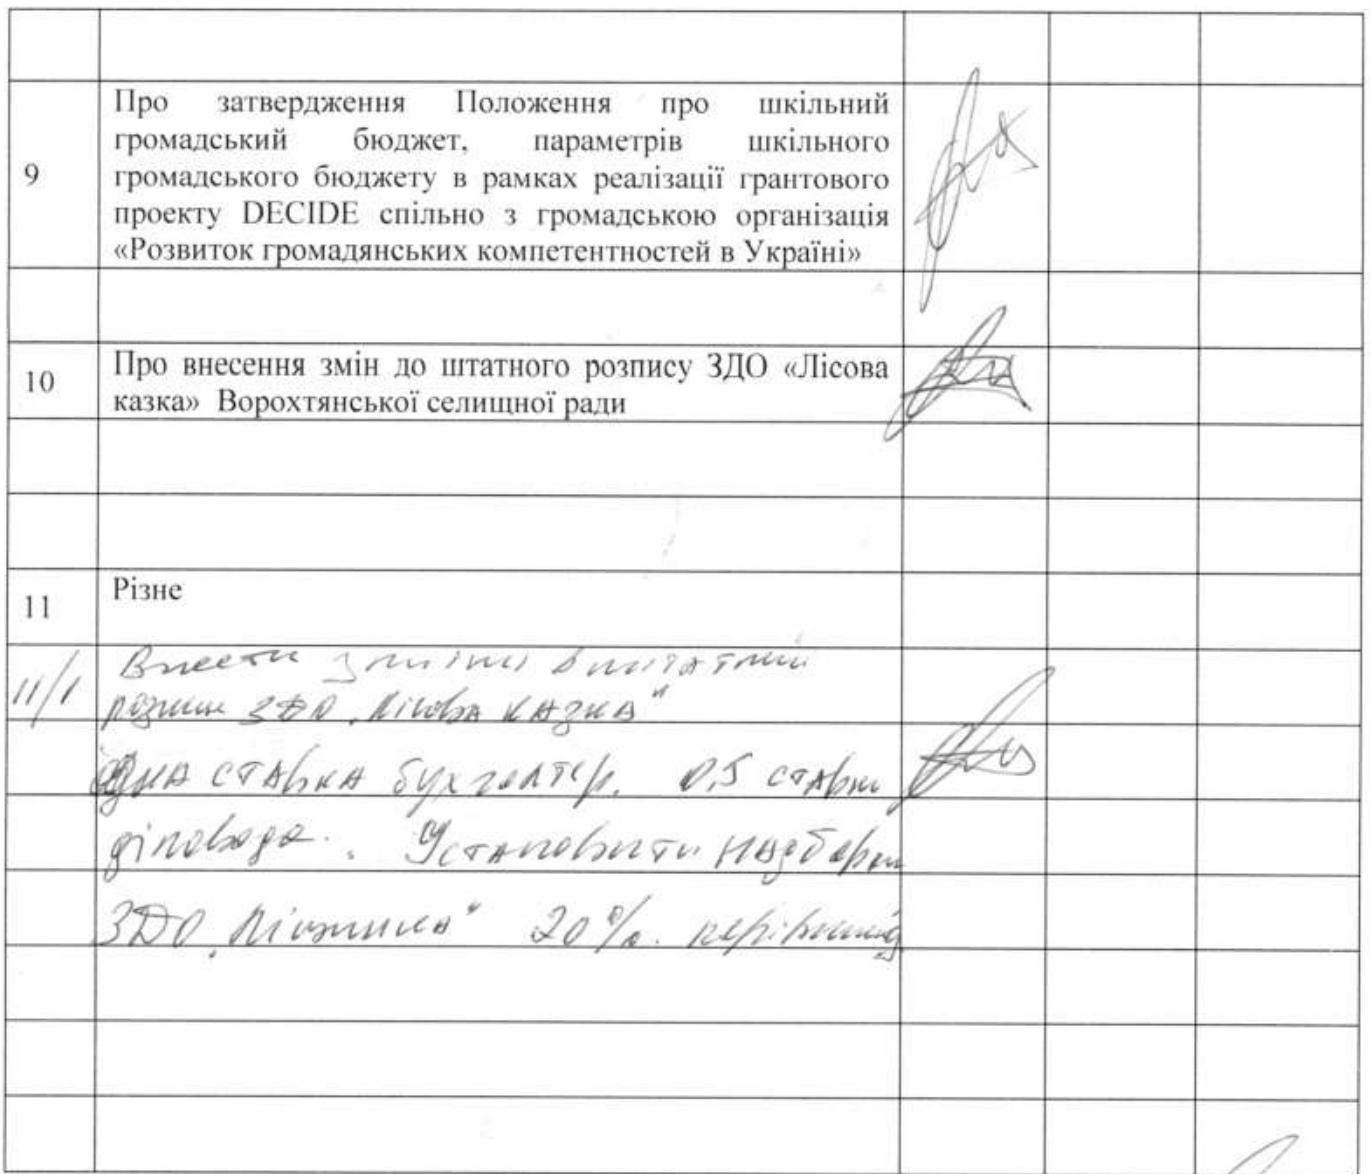 9
Про затвердження Положення про шкільний
громадський бюджет, параметрів шкільного
громадського бюджету в рамках реалізації грантового
проекту DECIDE спільно з громадською організація
«Розвиток громадянських компетентностей в Україні»
10
Про внесення змін до штатного розпису ЗДО «Лісова
казка» Ворохтянської селищної ради
11
Різне
11/1
Внести зміни в штатний
розпис ЗДО „Лісова казка"
Одна ставка бухгалтер. 0,5 ставки
діловода. Установити надбавки
ЗДО 20%.